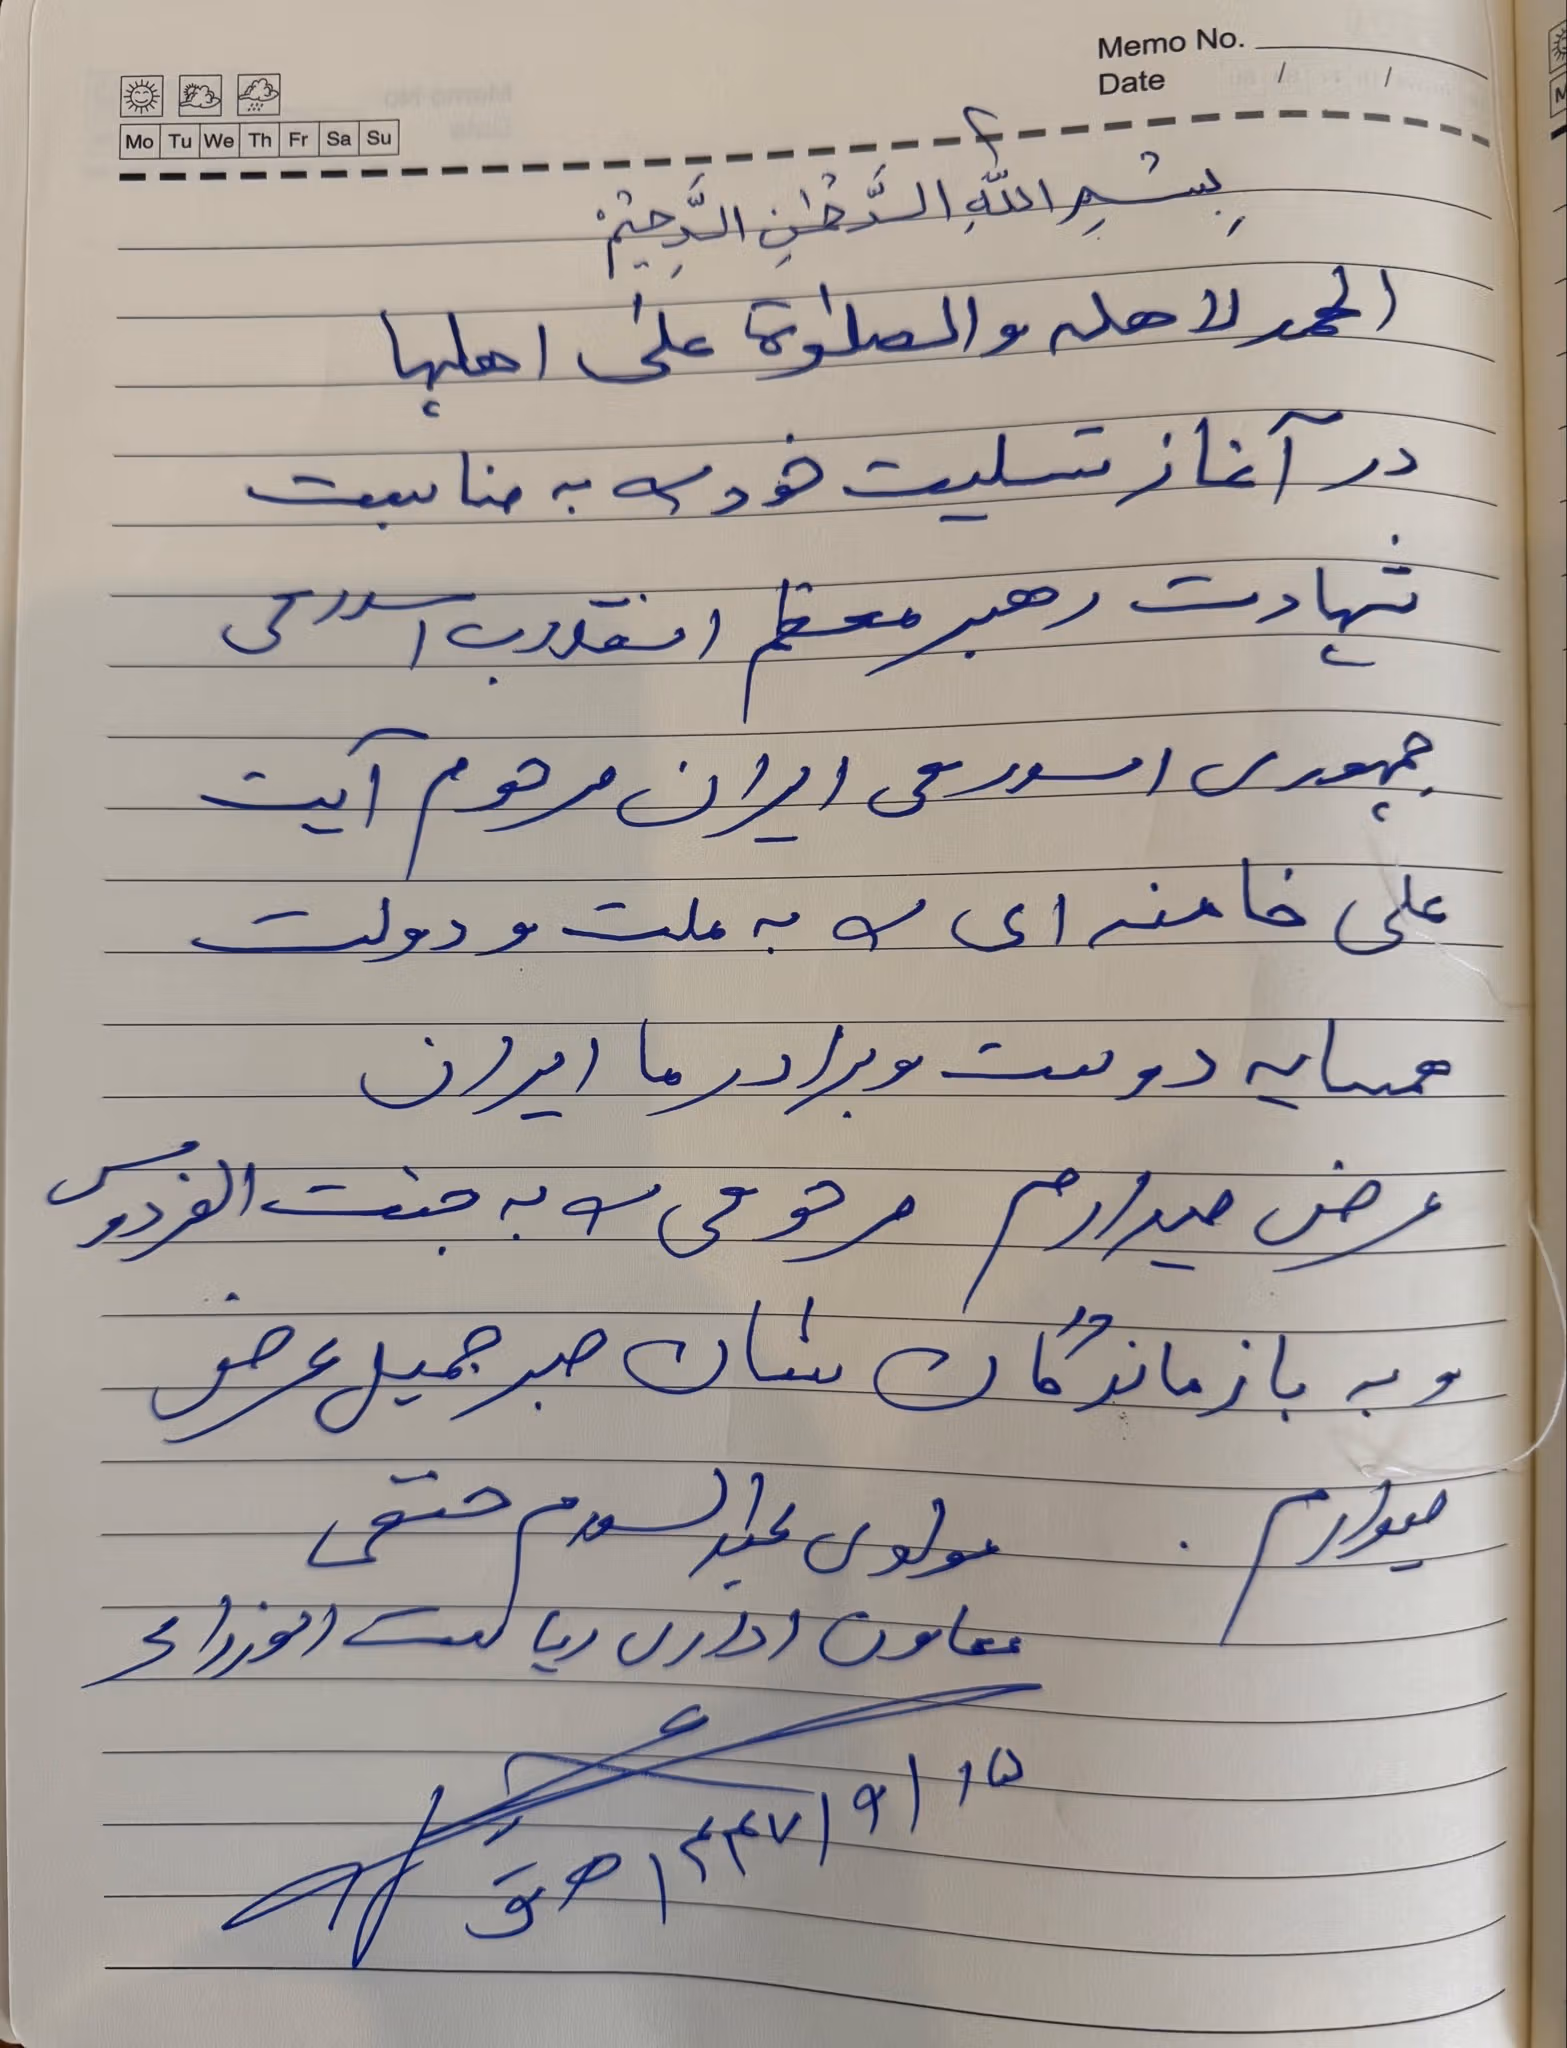 Memo No.
Date / /
Mo Tu We Th Fr Sa Su
بِسْمِ اللّٰهِ الرَّحْمٰنِ الرَّحِيْمْ
الحمد لاهله والصلوٰة علیٰ اهلها
در آغاز تسلیت خود را به مناسبت
شهادت رهبر معظم انقلاب اسلامی
جمهوری اسلامی ایران مرحوم آیت
علی خامنه ای را به ملت و دولت
همسایه دوست و برادر ما ایران
عرض میدارم مرحومی را به جنت الفردوس
و به بازماندگان شان صبر جمیل عرض
میدارم .
مولوی عبدالسلام حنفی
معاون اداری ریاست الوزراء
۱۵/۹/۱۴۴۷ هـ ق